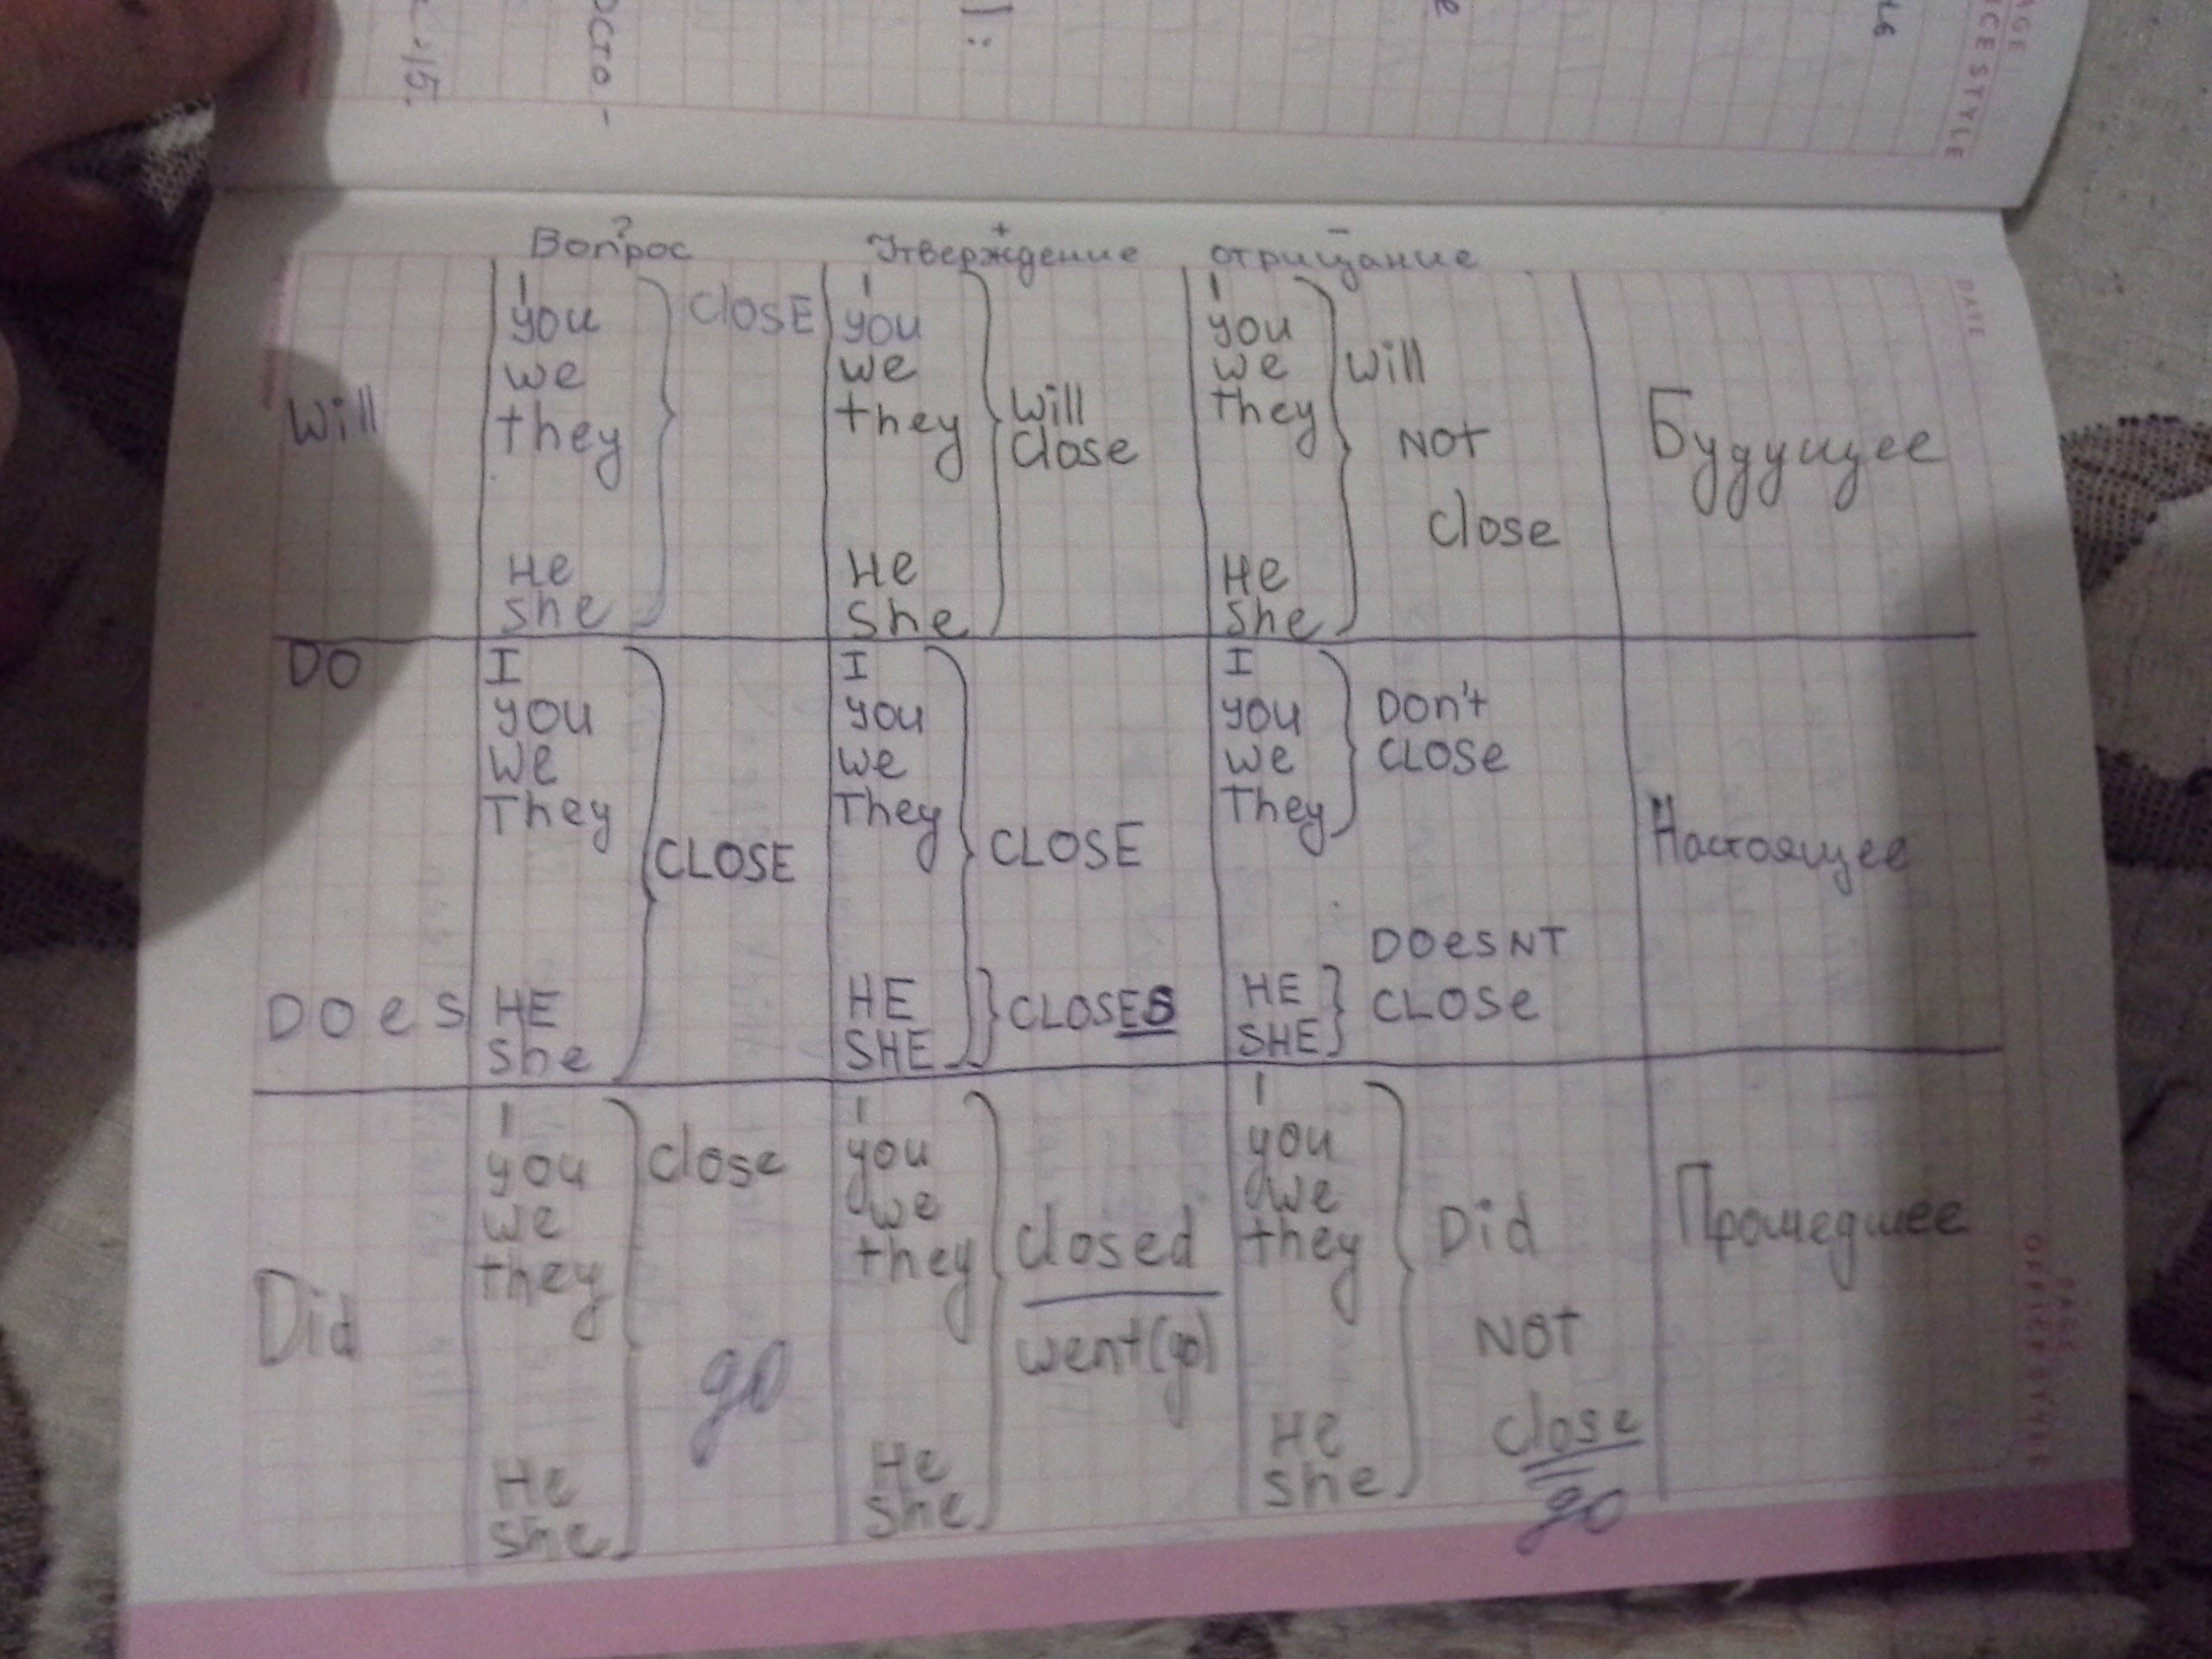 осто-
-15.
AGE
ICE STYLE
? + -
Вопрос Утверждение отрицание
DATE
Will
I
you
we
they
He
she
ClosE
I
you
we
they
He
she
Will
Close
I
you
we
they
He
she
Will
NOT
Close
Будущее
DO
DOeS
I
you
we
They
HE
She
CLOSE
I
you
we
They
CLOSE
HE
SHE
CLOSES
I
you
we
They
DON't
CLOSe
HE
SHE
DOesNT
CLOSe
Настоящее
Did
I
you
we
they
He
she
Close
go
I
you
we
they
He
she
Closed
went(go)
I
you
we
they
He
she
Did
NOT
Close
go
Прошедшее
PAGE
OFFICE STYLE